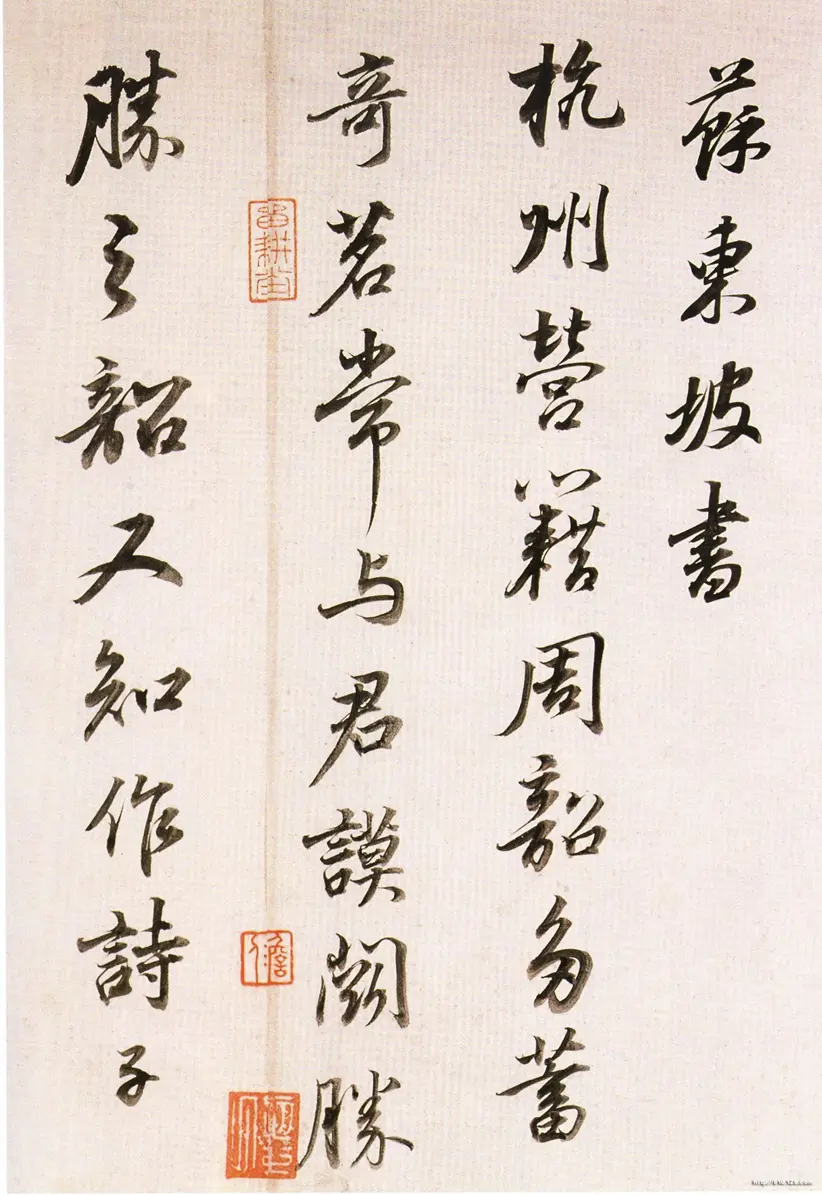 蘇東坡書
杭州營籍周韶多蓄
奇茗常与君謨闘勝
勝之韶又知作詩子
留耕堂